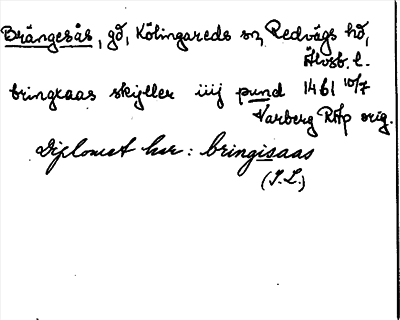 Brängesås, gd, Kölingareds sn, Redvägs hd,
Älvsb. l.
bringxaas skyller iiij pund 1461 10/7
Varberg RAp orig.
Diplomet har: bringisaas
(I.L.)